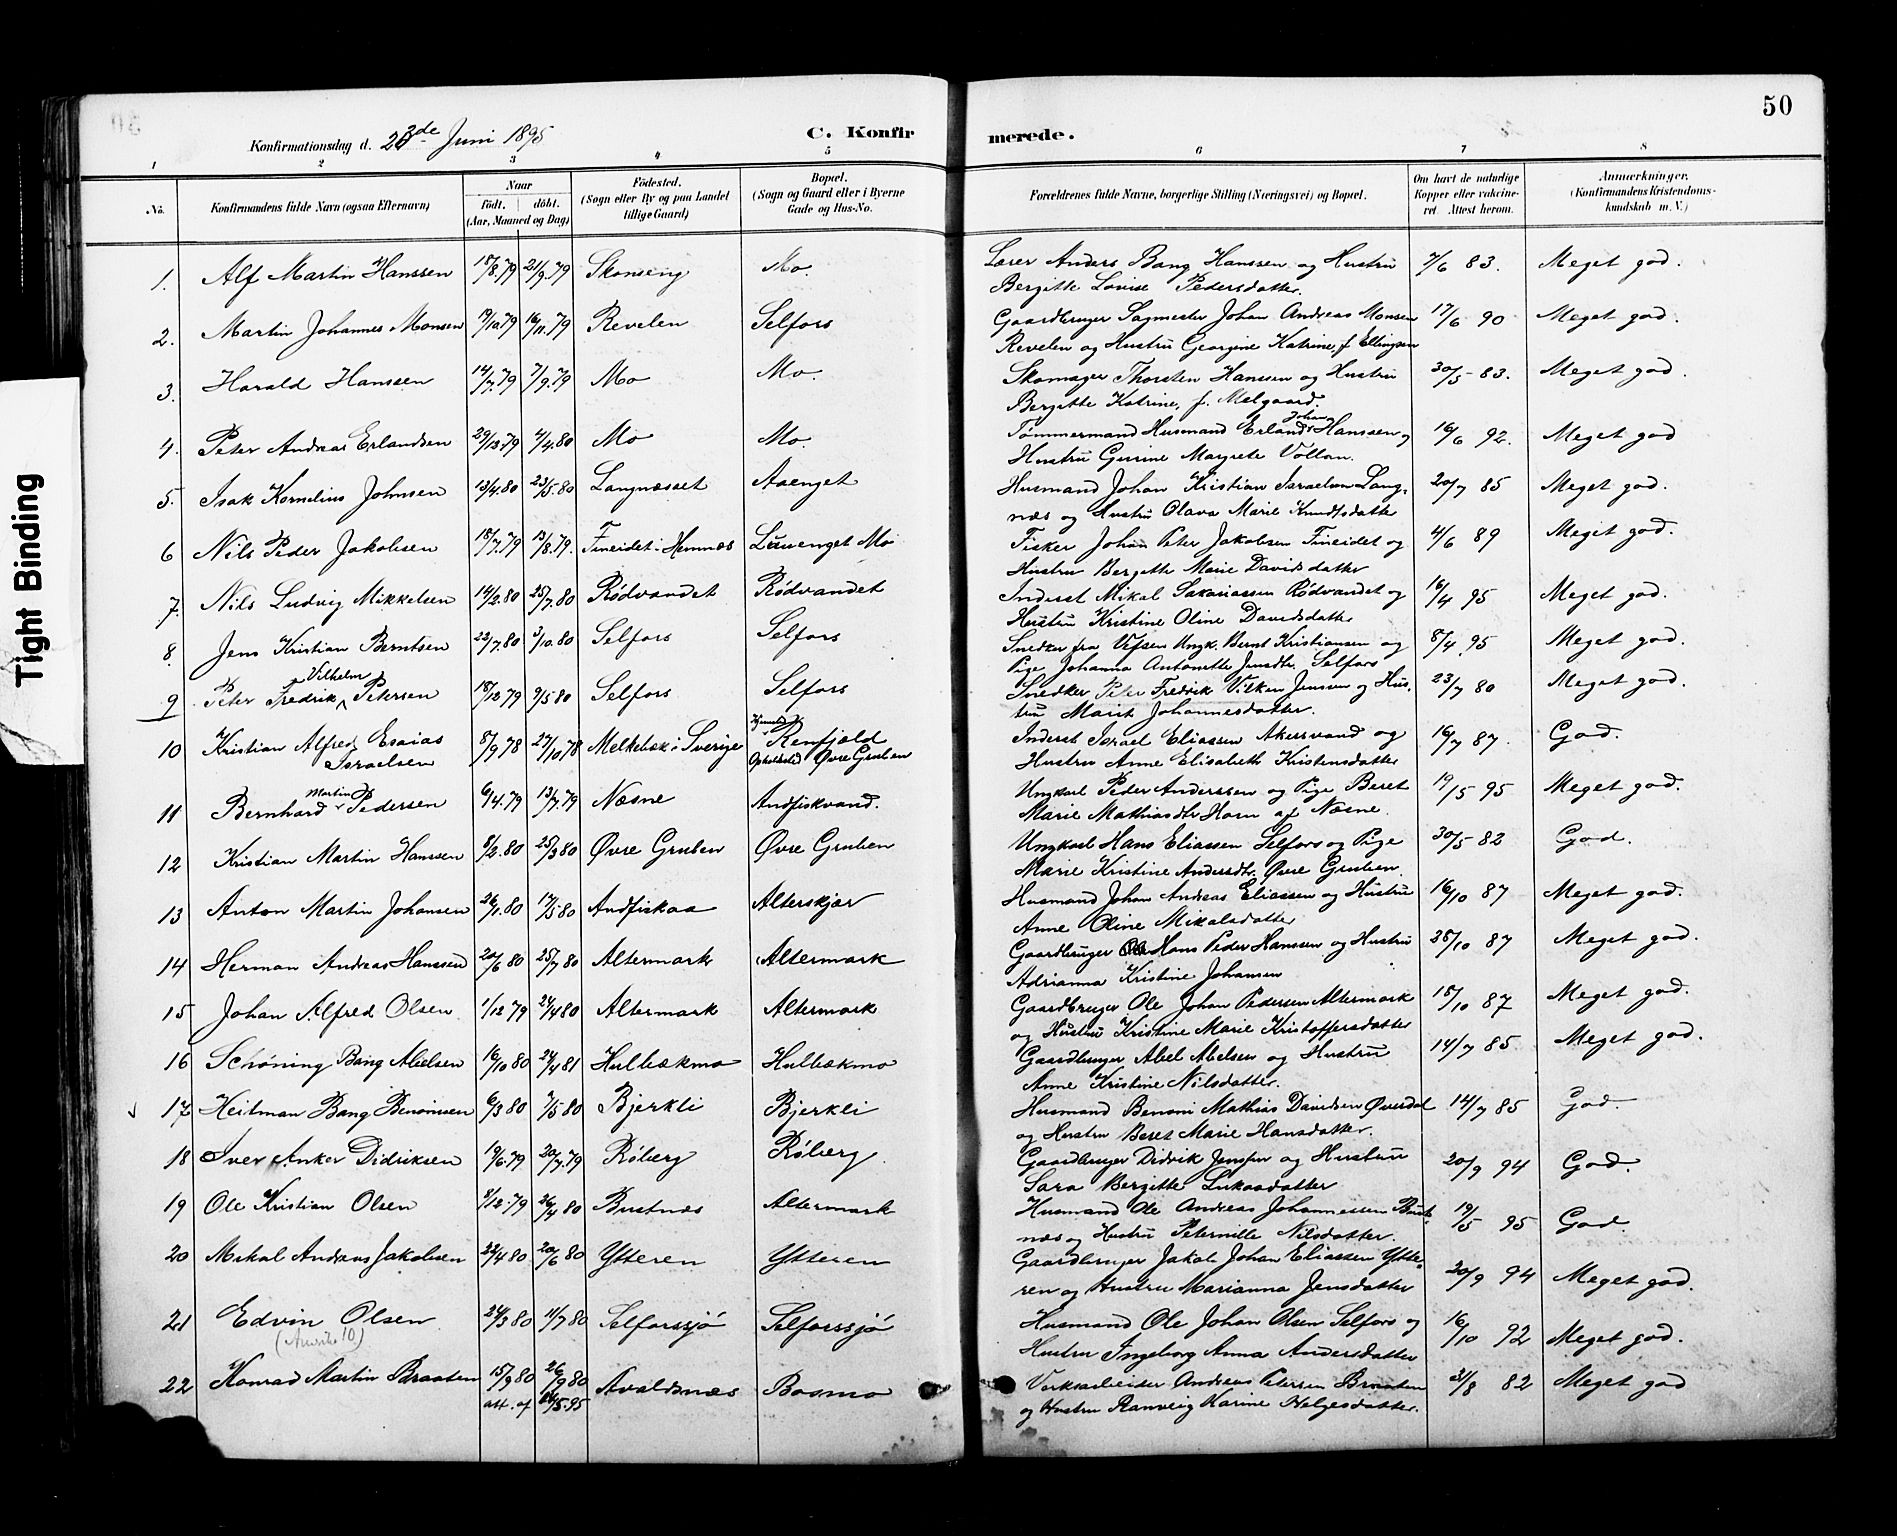 50
Konfirmationsdag d. 23de Juni 1895
C. Konfirmerede.
1 2 3 4 5 6 7 8
No. Konfirmandens fulde Navn (ogsaa Efternavn) Naar født. døbt. (Aar, Maaned og Dag) Fødested. (Sogn eller By og paa Landet tillige Gaard) Bopæl. (Sogn og Gaard eller i Byerne Gade og Hus-No. Forældrenes fulde Navne, borgerlige Stilling (Næringsvei) og Bopæl. Om havt de naturlige Kopper eller vaccineret. Attest herom. Anmærkninger. (Konfirmandens Kristendomskundskab m. V.)
1. Alf Martin Hanssen 18/8.79 21/9.79 Skonseng Mo. Lærer Anders Bang Hanssen og Hustru 7/6 83. Meget god.
Bergitte Lovise Pedersdatter.
2. Martin Johannes Monsen 19/10.79 16/11.79 Revelen Selfors Gaardbruger Sagmester Johan Andreas Monsen 17/6 90 Meget god.
Revelen og Hustru Georgine Katrine, f. Ellingsen
3. Harald Hanssen 14/7.79 7/9.79 Mo Mo. Skomager Thorsten Hanssen og Hustru 30/5-83. Meget god.
Bergitte Katrine, f. Melgaard.
4. Peter Andreas Erlandsen 29/12.79 4/4.80 Mo Mo. Tømmermand Husmand Erland Johan Hanssen og 16/6 92. Meget god
Hustru Gurine Margrete Vollan.
5. Isak Kornelius Johnsen 13/4.80 23/5.80 Langnæsset Aaenget Husmand Johan Kristian Israelsen Lang- 20/7 85 Meget god.
næs og Hustru Olava Marie Knudtsdatter
6 Nils Peder Jakobsen 18/7.79 13/8.79. Fineidet i Hemnæs Mo Fisker Johan Peter Jakobsen Fineidet og 4/6 89 Meget god.
Hustru Bergitte Marie Davidsdatter
7. Nils Ludvig Mikkelsen 14/2.80 25/7.80 Rødvandet Rødvandet Inderst Mikal Sakariassen Rødvandet og 16/4 95 Meget god.
Hustru Kristine Oline Davidsdatter
8. Jens Kristian Berntsen 22/7.80 3/10.80 Selfors Selfors Snedker fra Vefsen Ungk. Bernt Kristiansen og 8/4.95 Meget god.
Pige Johanna Antonette Jensdtr. Selfors
9 Peter Fredrik Vilhelm Petersen 18/12.79 9/5 80 Selfors Selfors Snedker Peter Fredrik Vilken Jensen og Hus- 23/7 80 Meget god.
tru Marit Johannesdatter.
10 Kristian Alfred Esaias Israelsen 8/9.78 27/10.78 Melkebæk i Sverige Hjemsted Renfjeld Opholdssted Øvre Gruben Inderst Israel Eliassen Akersvand og 16/7 87. God.
Hustru Anne Elisabeth Kristensdatter
11 Bernhard Martin Pedersen 6/4.79 13/7.79 Næsne Andfiskvand. Ungkarl Peder Anderssen og Pige Beret 19/15 95 Meget god.
Marie Mathiasdtr Horn af Næsne.
12 Kristian Martin Hanssen 8/2.80 25/3 80 Øvre Gruben Øvre Gruben Ungkarl Hans Eliassen Selfors og Pige 30/5-82 God.
Marie Kristine Andersdtr. Øvre Gruben
13 Anton Martin Johansen 26/1.80 17/5 80 Andfiskaa Alterskjær Husmand Johan Andreas Eliassen og Hustru 16/10 87 Meget god.
Anne Oline Mikalsdatter
14 Herman Andreas Hanssen 20/6 80 25/7 80 Altermark Altermark Gaardbruger Hans Peder Hanssen og Hustru 25/10 87 Meget god.
Adrianna Kristine Johansen
15 Johan Alfred Olsen 1/12 79 24/4 80 Altermark Altermark Gaardbruger Ole Johan Pedersen Altermark 18/10 87 Meget god.
og Hustru Kristine Marie Kristoffersdatter
16 Schøning Bang Abelsen 16/10 80 24/4 81 Hulbækmo Hulbækmo Gaardbruger Abel Abelsen og Hustru 14/7 85. Meget god.
Anne Kristine Nilsdatter.
17 Heitman Bang Benonisen 6/3 80 7/5 80 Bjerkli Bjerkli Husmand Benoni Mathias Davidsen Øverdal 14/7 85 God.
og Hustru Beret Marie Hansdatter.
18 Iver Anker Didriksen 19/6.79 20/7.79 Røberg Røberg Gaardbruger Didrik Jensen og Hustru 20/9 94 God.
Sara Bergitte Lukasdatter
19 Ole Kristian Olsen 8/12.79 26/4 80 Bustnæs Altermark Husmand Ole Andreas Johannessen Bust- 19/5 95 God.
næs og Hustru Peternille Nilsdatter.
20 Mikal Andreas Jakobsen 22/4 80 20/6 80 Ytteren Ytteren Gaardbruger Jakob Johan Eliassen Ytte- 20/9 94 Meget god.
ren og Hustru Marianna Jensdatter
21 Edvin Olsen 24/3 80 11/7 80 Selforssjø Selforssjø Husmand Ole Johan Olsen Selfors og 16/10 92 Meget god.
Hustru Ingeborg Anna Andersdatter
22 Konrad Martin Braaten 15/9 80 26/9 80 Avaldsnæs Bosmo Verksarbeider Andreas Petersen Braaten 21/8 82 Meget god
att. af 14/5.95 og Hustru Ranveig Karine Helgesdatter.
Tight Binding